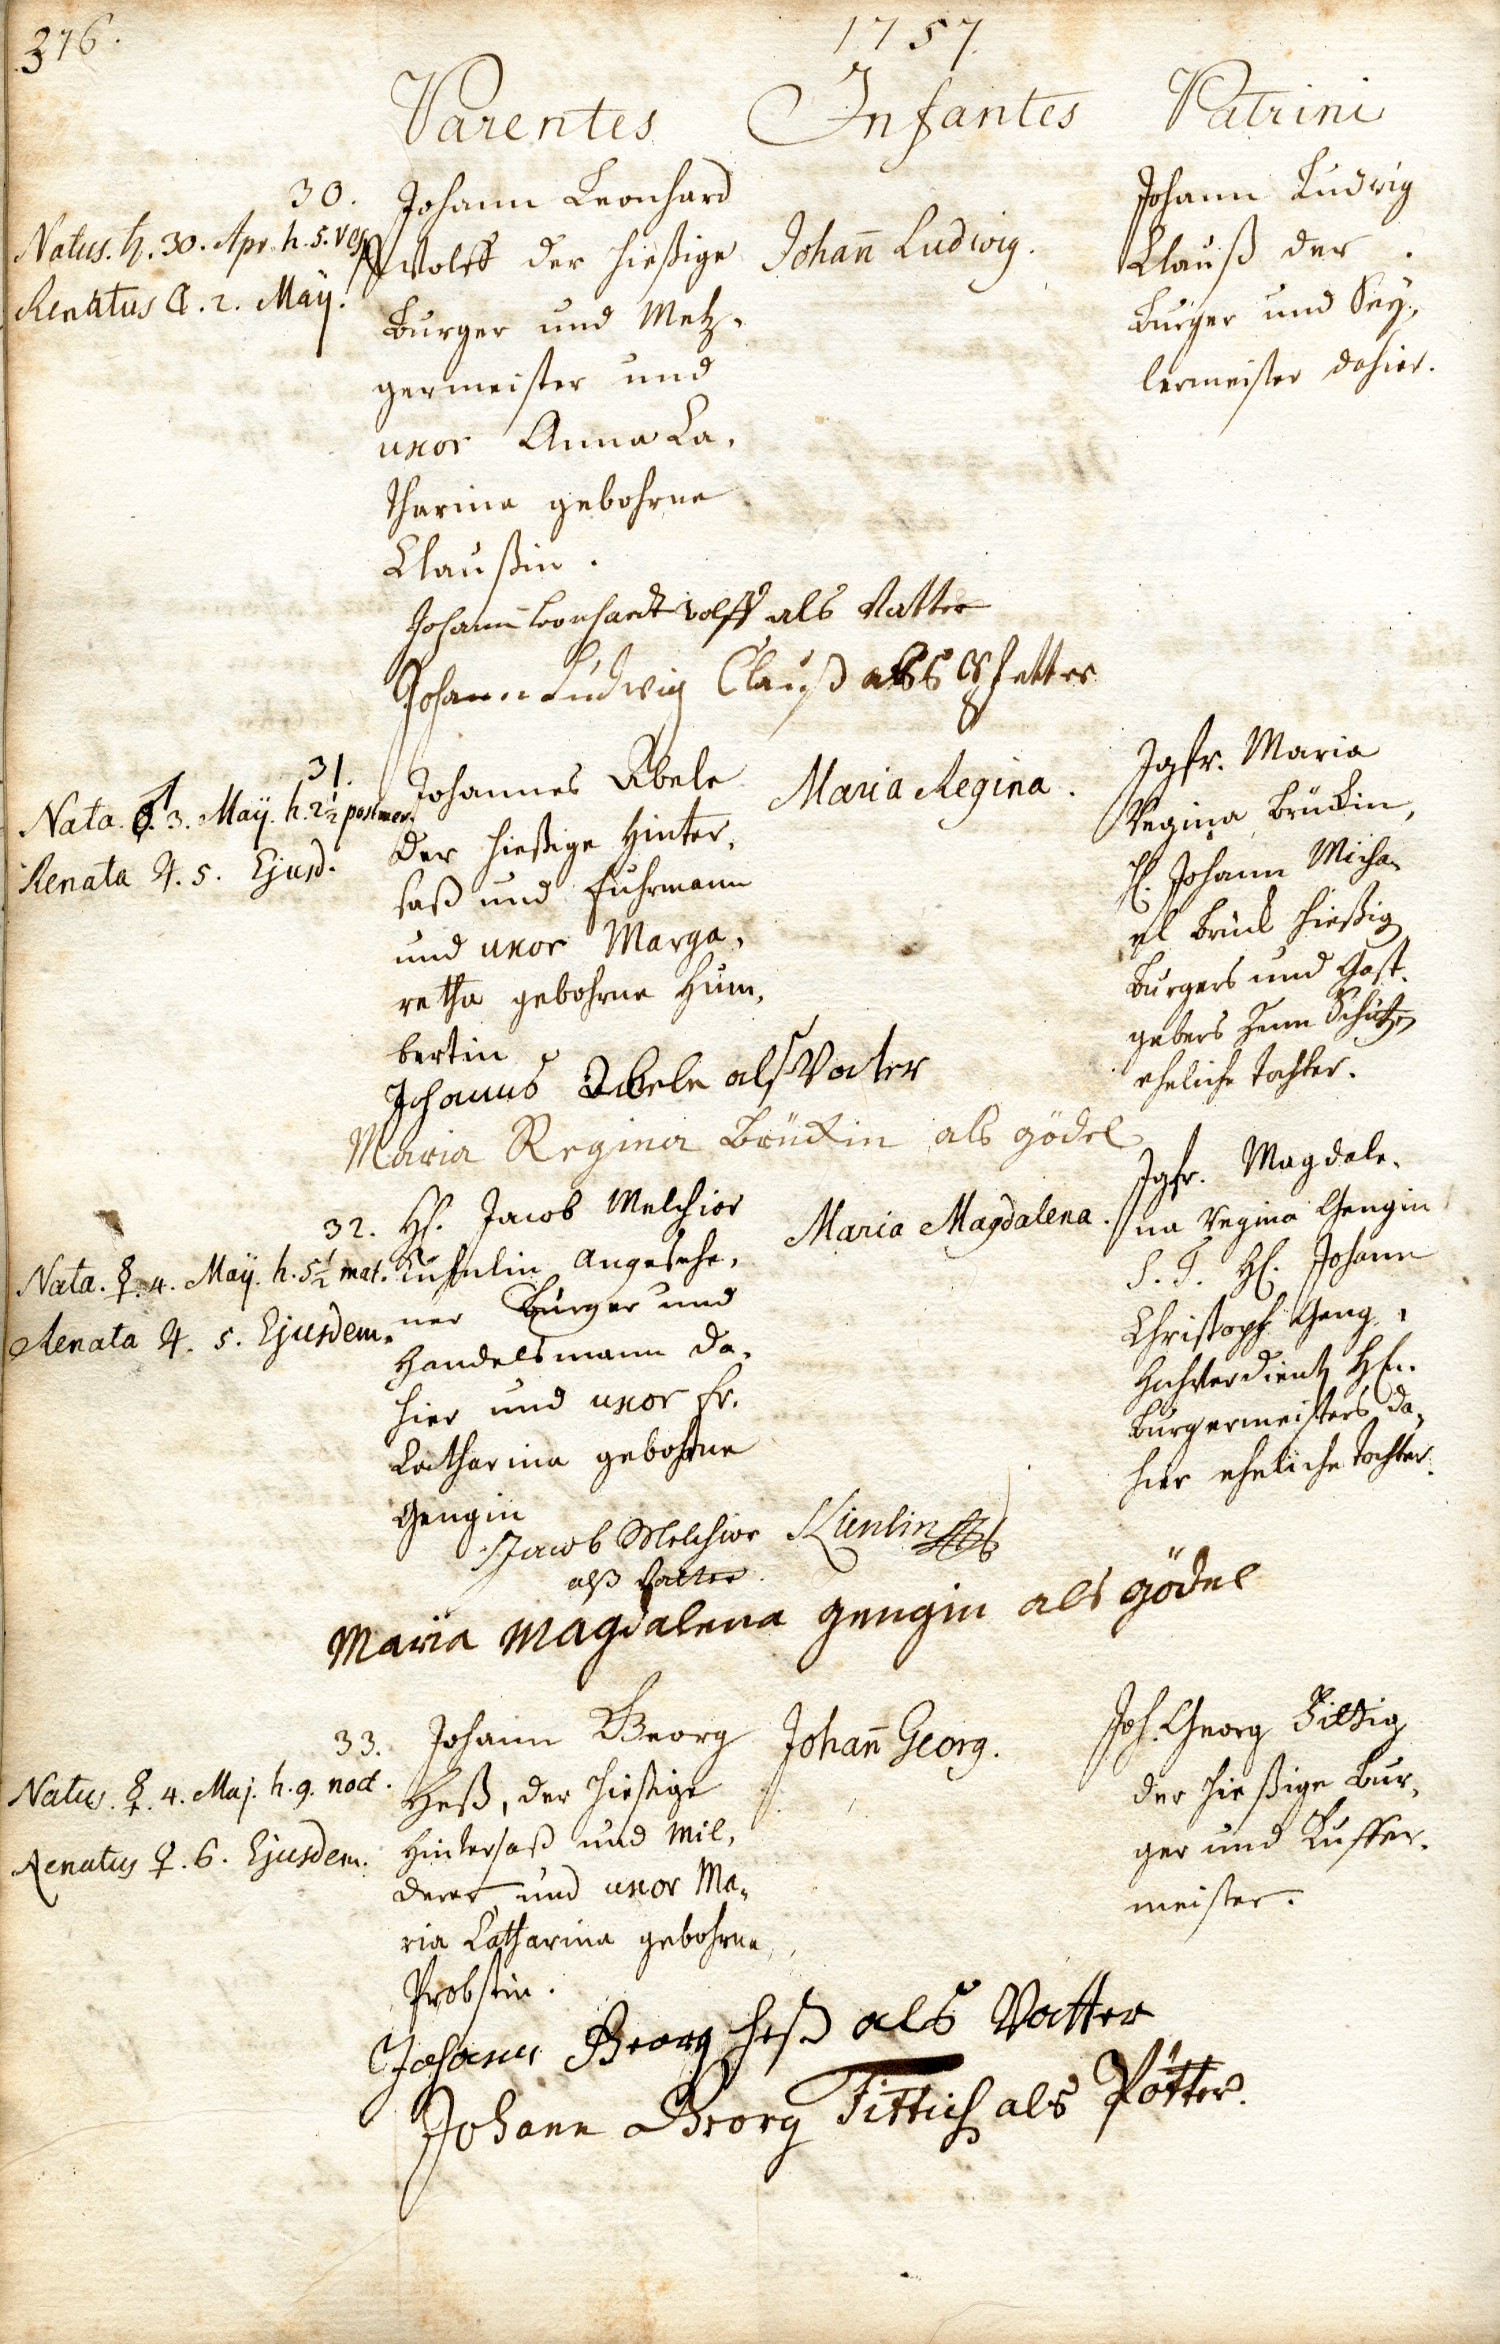 376.
1757.
Parentes Infantes Patrini
30.
Natus. ♄. 30. Apr. h. 5. vesp.
Renatus ☾. 2. Maÿ.
Johann Leonhard
Wolff der hießige
Burger und Metz-
germeister und
uxor Anna Ca-
tharina gebohrne
Claußin.
Johan̄ Ludwig.
Johann Ludwig
Clauß der
Burger und Sey-
lermeister dahier.
Johann Leonhardt Wolff als Vatter
Johann Ludwig Clauß alß Pfetter
31.
Nata. ♂. 3. Maÿ. h. 2½ postmer.
Renata ♃. 5. Ejusd.
Johannes Abele
der hießige Hinter-
saß und Fuhrmann
und uxor Marga-
retha gebohrne Hum-
bertin
Maria Regina.
Jgfr. Maria
Regina Brückin,
H. Johann Micha-
el Brück hießig
Burgers und Gast-
gebers zum Schützen
eheliche Tochter.
Johannes Abele alß Vater
Maria Regina Brückin als gödel
32.
Nata. ☿. 4. Maÿ. h. 5½ mat.
Renata ♃. 5. Ejusdem.
H. Jacob Melchior
Kuhnlin Angesehe-
ner Burger und
Handelsmann da-
hier und uxor Fr.
Catharina gebohrne
Gengin
Maria Magdalena.
Jgfr. Magdale-
na Regina Gengin
S. T. H. Johann
Christoph Geng
Hochverdient Hn.
Burgermeisters da-
hier eheliche Tochter.
Jacob Melchior Künlin
alß Vatter.
Maria Magdalena gengin als gödel
33.
Natus. ☿. 4. Maj. h. 9. noct.
Renatus ♀. 6. Ejusdem.
Johann Georg
Heß, der hießige
Hintersaß und
und uxor Ma-
ria Catharina gebohrne
Probstin.
Johan̄ Georg.
Joh. Georg Fittig
der hießige Bur-
ger und Kuffer-
meister.
Johann Georg heß als Vatter
Johann Georg Fittich als Pötter.